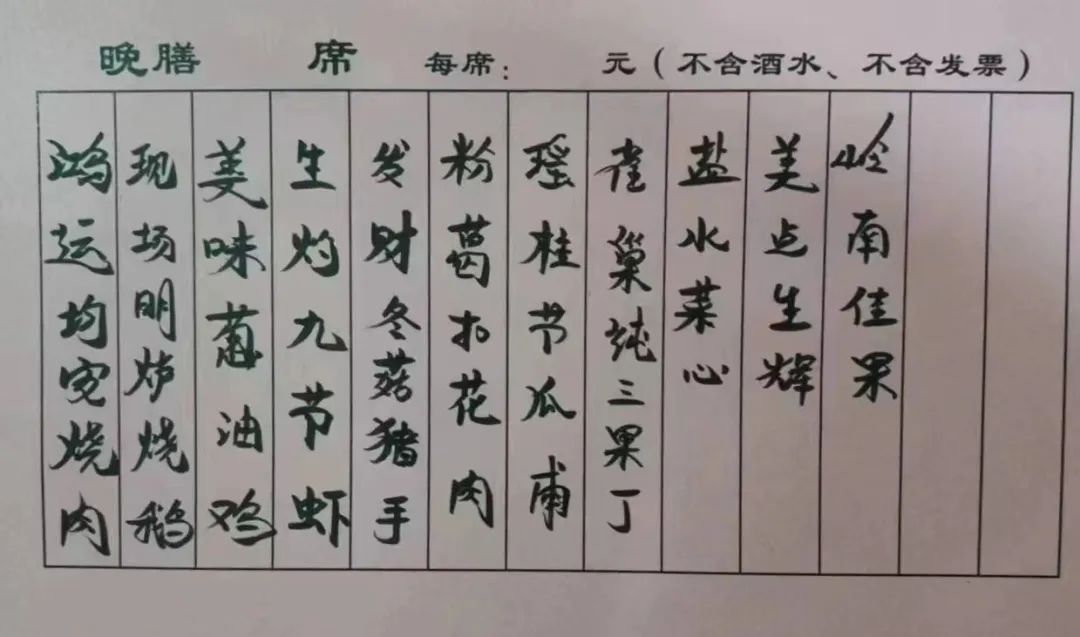 晚膳 席 每席： 元（不含酒水、不含发票）
鸿运均安烧肉
现场明炉烧鹅
美味葱油鸡
生灼九节虾
发财冬菇猪手
粉葛扣花肉
瑶柱节瓜甫
雀巢炖三果丁
盐水菜心
美点生辉
岭南佳果